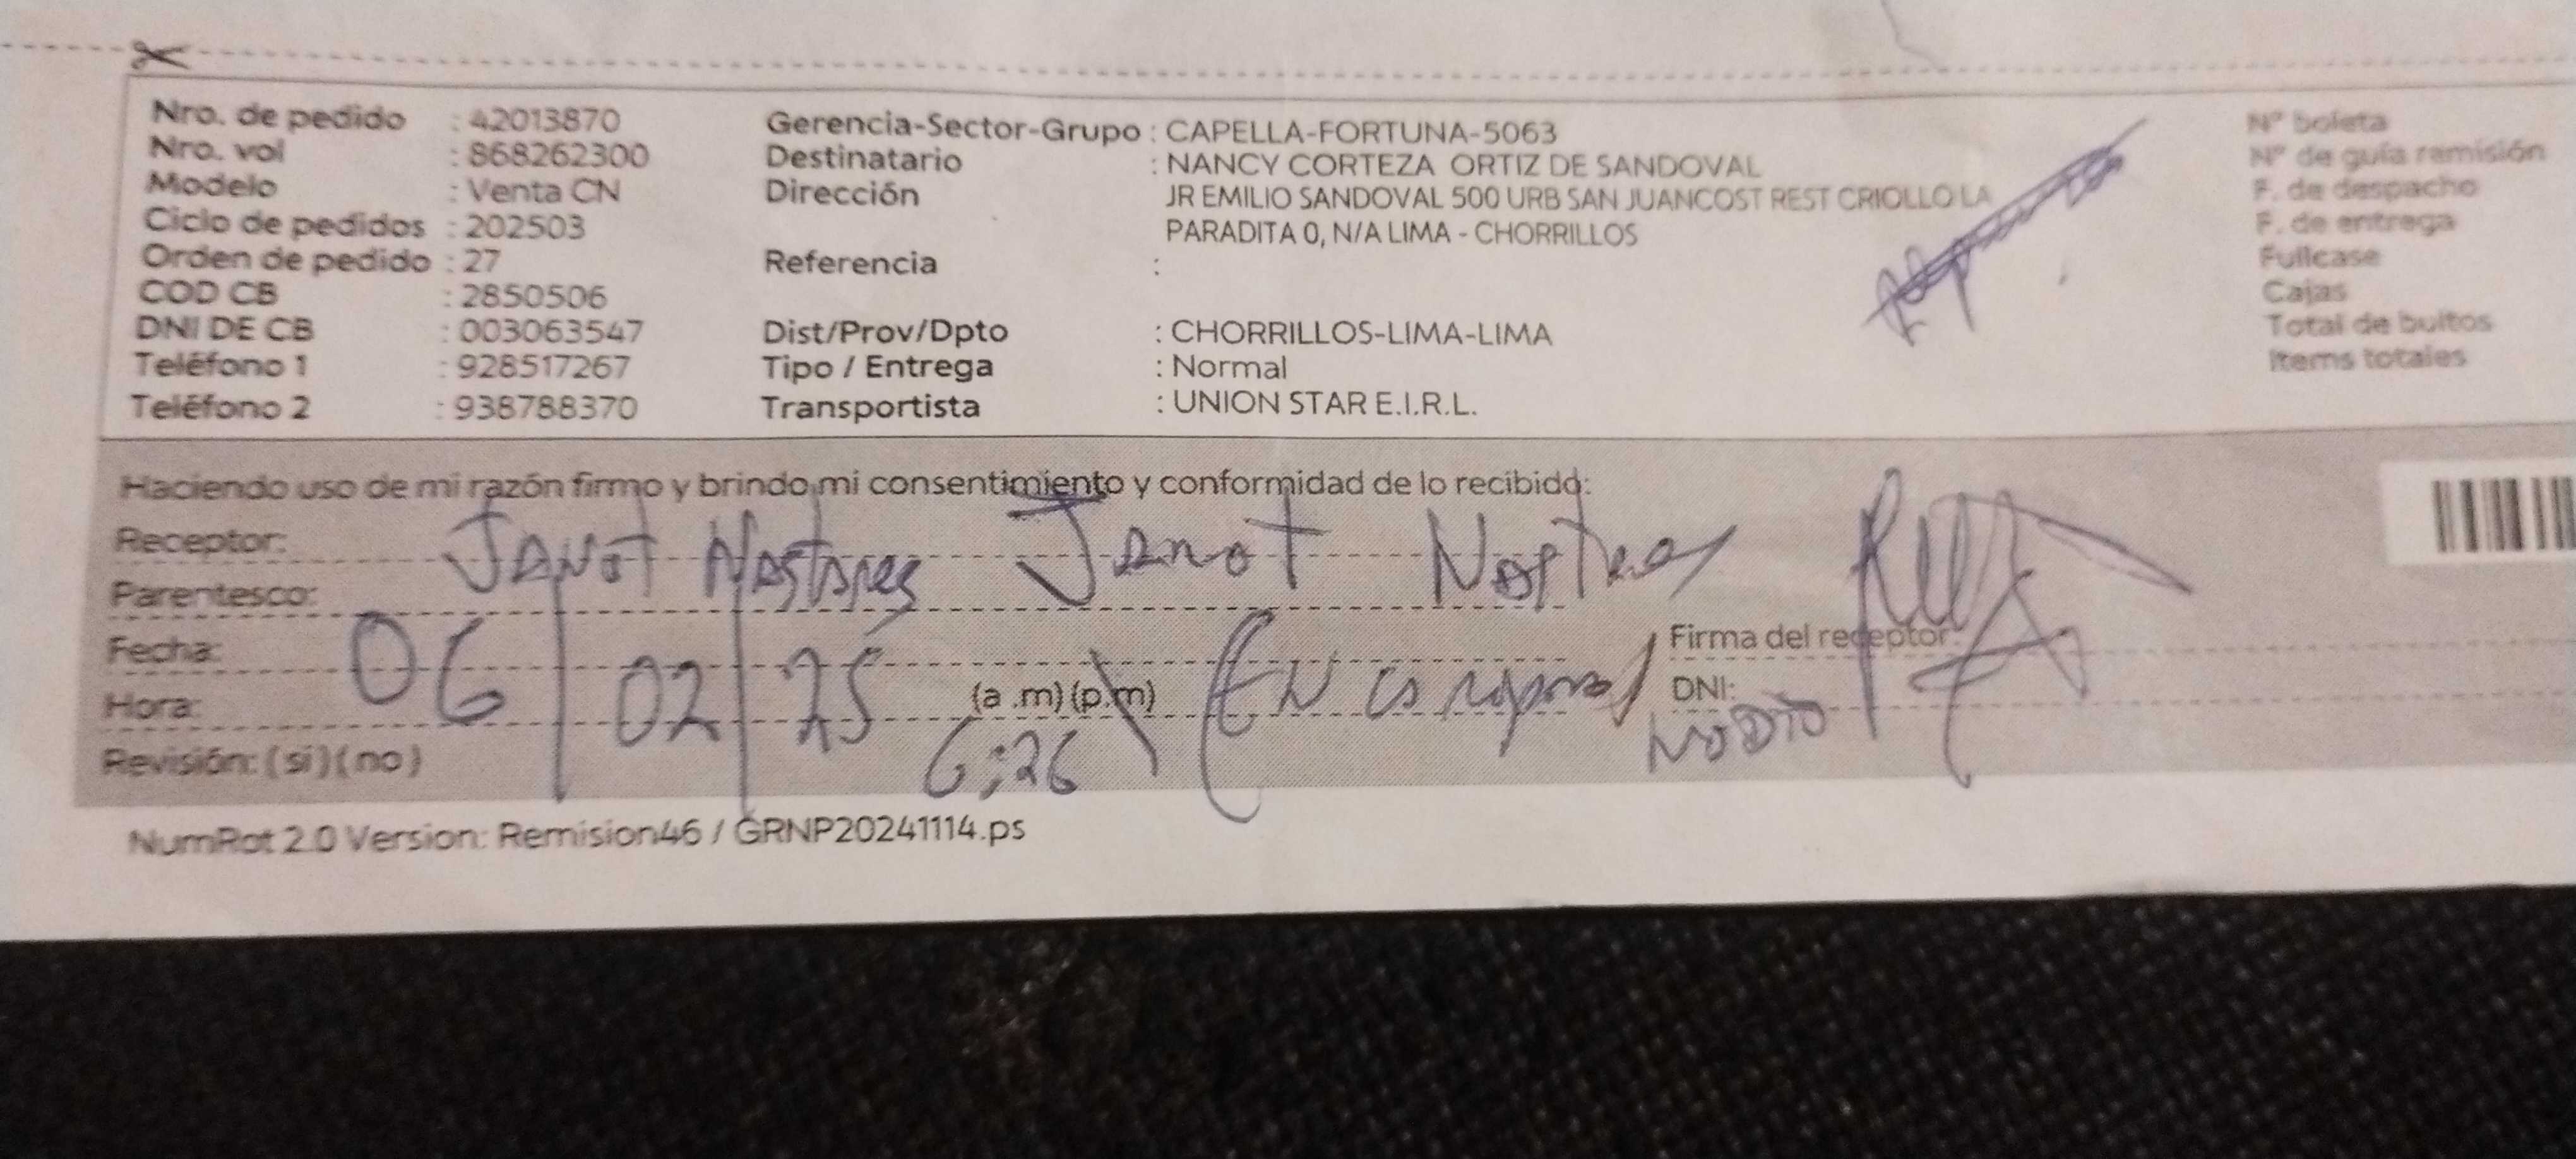 Nro. de pedido : 42013870
Nro. vol : 868262300
Modelo : Venta CN
Ciclo de pedidos : 202503
Orden de pedido : 27
COD CB : 2850506
DNI DE CB : 003063547
Teléfono 1 : 928517267
Teléfono 2 : 938788370
Gerencia-Sector-Grupo : CAPELLA-FORTUNA-5063
Destinatario : NANCY CORTEZA ORTIZ DE SANDOVAL
Dirección JR EMILIO SANDOVAL 500 URB SAN JUANCOST REST CRIOLLO LA
PARADITA 0, N/A LIMA - CHORRILLOS
Referencia :
Dist/Prov/Dpto : CHORRILLOS-LIMA-LIMA
Tipo / Entrega : Normal
Transportista : UNION STAR E.I.R.L.
Nº boleta
Nº de guía remisión
F. de despacho
F. de entrega
Fullcase
Cajas
Total de bultos
Items totales
Haciendo uso de mi razón firmo y brindo mi consentimiento y conformidad de lo recibido:
Receptor: Janot Janot
Parentesco:
Fecha: 06/02/25
Hora: (a .m) (p.m) 6:26
Revisión: ( si ) ( no )
Firma del receptor:
DNI:
NumRot 2.0 Version: Remision46 / GRNP20241114.ps